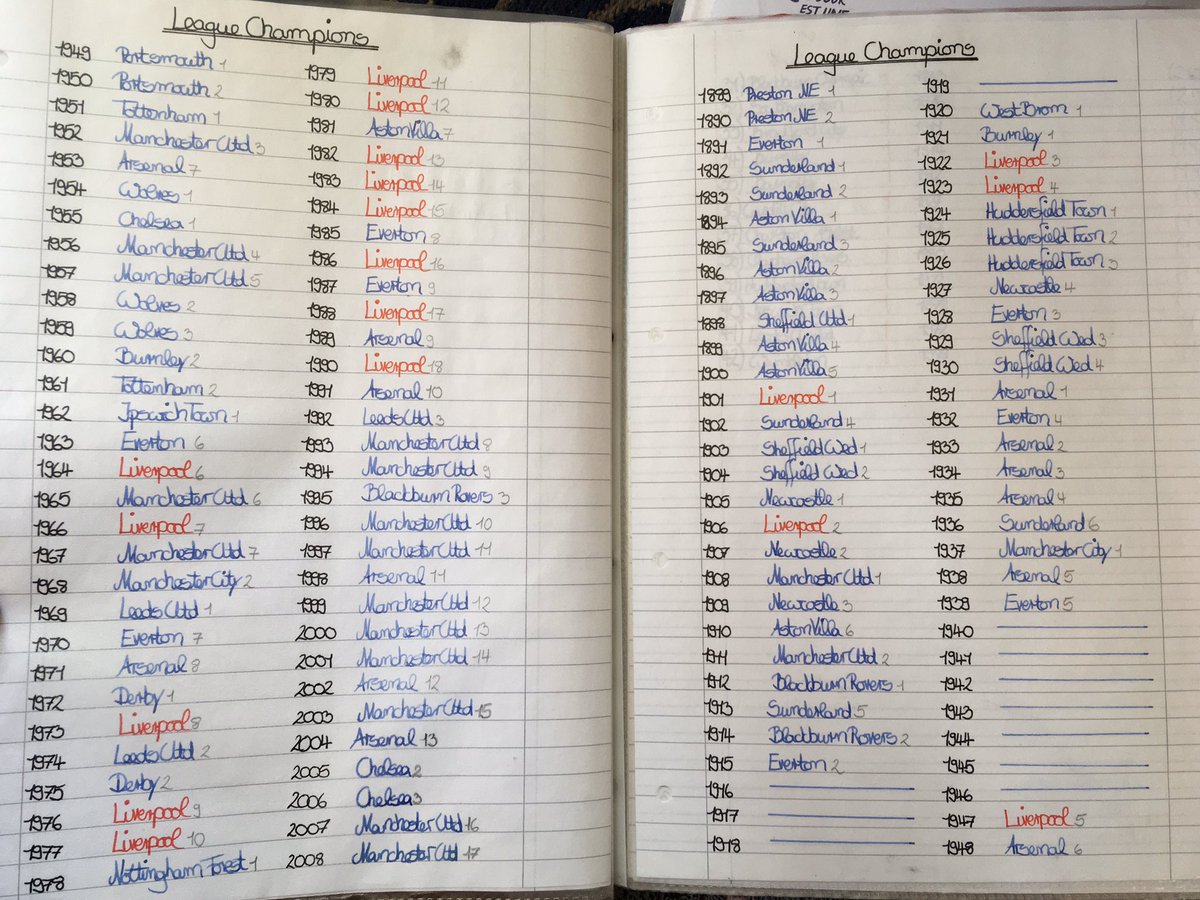 EST UNE
League Champions
1949 Portsmouth 1
1950 Portsmouth 2
1951 Tottenham 1
1952 Manchester Utd 3
1953 Arsenal 7
1954 Wolves 1
1955 Chelsea 1
1956 Manchester Utd 4
1957 Manchester Utd 5
1958 Wolves 2
1959 Wolves 3
1960 Burnley 2
1961 Tottenham 2
1962 Ipswich Town 1
1963 Everton 6
1964 Liverpool 6
1965 Manchester Utd 6
1966 Liverpool 7
1967 Manchester Utd 7
1968 Manchester City 2
1969 Leeds Utd 1
1970 Everton 7
1971 Arsenal 8
1972 Derby 1
1973 Liverpool 8
1974 Leeds Utd 2
1975 Derby 2
1976 Liverpool 9
1977 Liverpool 10
1978 Nottingham Forest 1
1979 Liverpool 11
1980 Liverpool 12
1981 Aston Villa 7
1982 Liverpool 13
1983 Liverpool 14
1984 Liverpool 15
1985 Everton 8
1986 Liverpool 16
1987 Everton 9
1988 Liverpool 17
1989 Arsenal 9
1990 Liverpool 18
1991 Arsenal 10
1992 Leeds Utd 3
1993 Manchester Utd 8
1994 Manchester Utd 9
1995 Blackburn Rovers 3
1996 Manchester Utd 10
1997 Manchester Utd 11
1998 Arsenal 11
1999 Manchester Utd 12
2000 Manchester Utd 13
2001 Manchester Utd 14
2002 Arsenal 12
2003 Manchester Utd 15
2004 Arsenal 13
2005 Chelsea 2
2006 Chelsea 3
2007 Manchester Utd 16
2008 Manchester Utd 17
League Champions
1889 Preston NE 1
1890 Preston NE 2
1891 Everton 1
1892 Sunderland 1
1893 Sunderland 2
1894 Aston Villa 1
1895 Sunderland 3
1896 Aston Villa 2
1897 Aston Villa 3
1898 Sheffield Utd 1
1899 Aston Villa 4
1900 Aston Villa 5
1901 Liverpool 1
1902 Sunderland 4
1903 Sheffield Wed 1
1904 Sheffield Wed 2
1905 Newcastle 1
1906 Liverpool 2
1907 Newcastle 2
1908 Manchester Utd 1
1909 Newcastle 3
1910 Aston Villa 6
1911 Manchester Utd 2
1912 Blackburn Rovers 1
1913 Sunderland 5
1914 Blackburn Rovers 2
1915 Everton 2
1916
1917
1918
1919
1920 West Brom 1
1921 Burnley 1
1922 Liverpool 3
1923 Liverpool 4
1924 Huddersfield Town 1
1925 Huddersfield Town 2
1926 Huddersfield Town 3
1927 Newcastle 4
1928 Everton 3
1929 Sheffield Wed 3
1930 Sheffield Wed 4
1931 Arsenal 1
1932 Everton 4
1933 Arsenal 2
1934 Arsenal 3
1935 Arsenal 4
1936 Sunderland 6
1937 Manchester City 1
1938 Arsenal 5
1939 Everton 5
1940
1941
1942
1943
1944
1945
1946
1947 Liverpool 5
1948 Arsenal 6